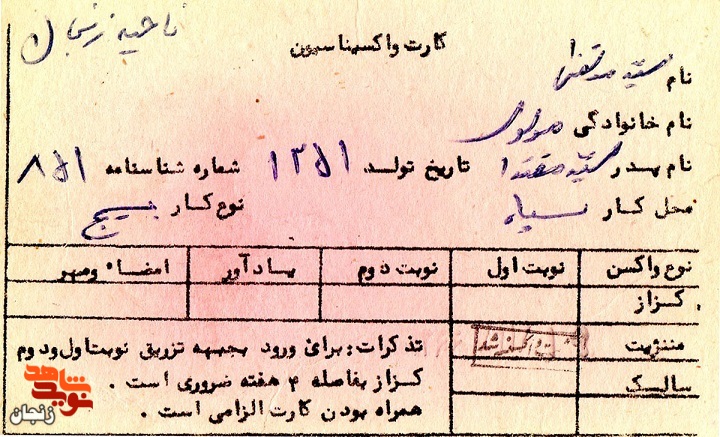 ناحیه زنجان
کارت واکسیناسیون
نام سید مرتضی
نام خانوادگی مولوی
نام پدر سید مقتدا تاریخ تولد ۱۳۵۱ شماره شناسنامه ۸۵۱
محل کار سپاه نوع کار بسیج
نوع واکسن نوبت اول نوبت دوم یادآور امضاء ومهر
کزاز
مننژیت شد
سالک
تذکرات: برای ورود بجبهه تزریق نوبت اول ودوم
کزاز بفاصله ۴ هفته ضروری است .
همراه بودن کارت الزامی است .
نوید شاهد
زنجان